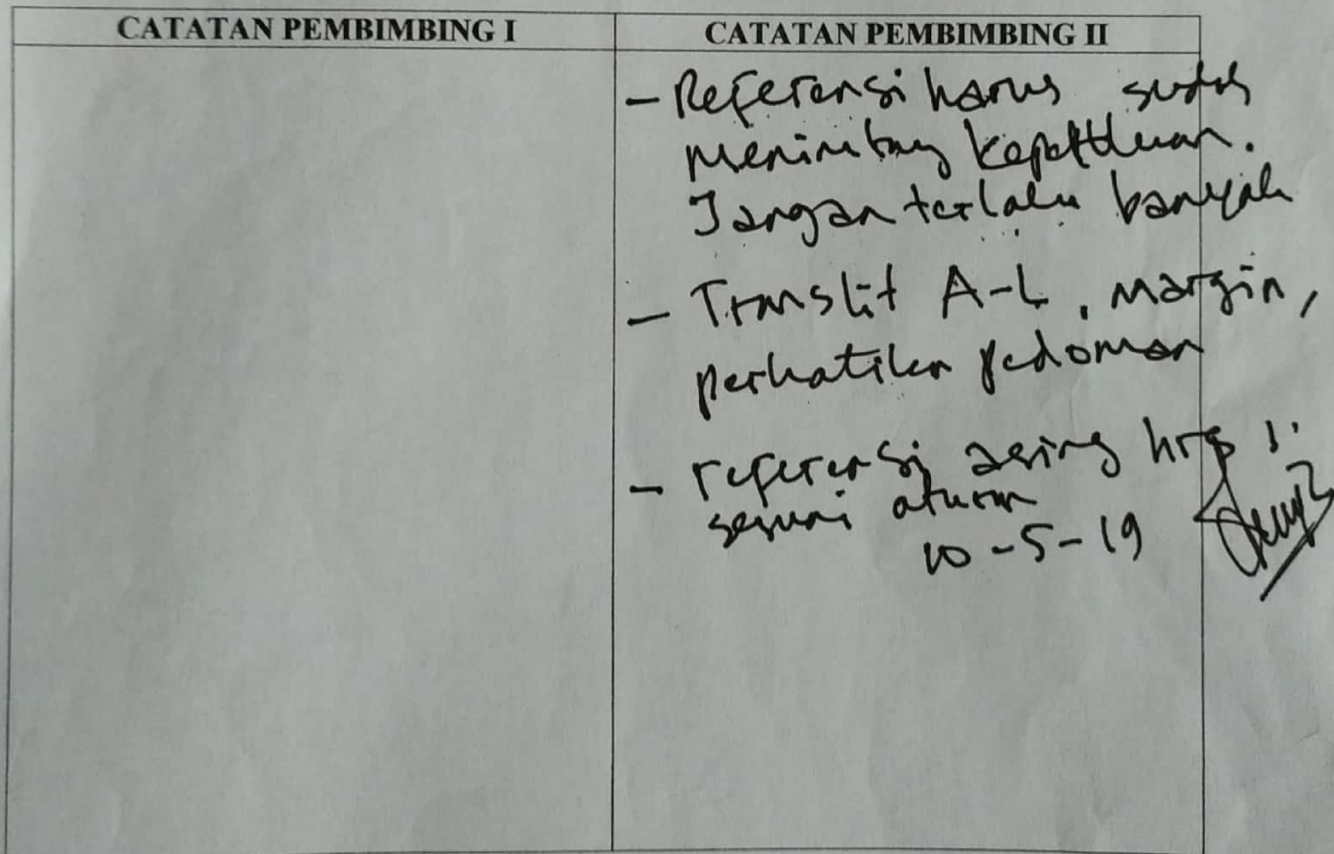 CATATAN PEMBIMBING I
CATATAN PEMBIMBING II
- Referensi harus sudah
Jangan terlalu banyak
- Translit A-L, margin,
perhatikan pedoman
- referensi asing
sesuai aturan
10-5-19